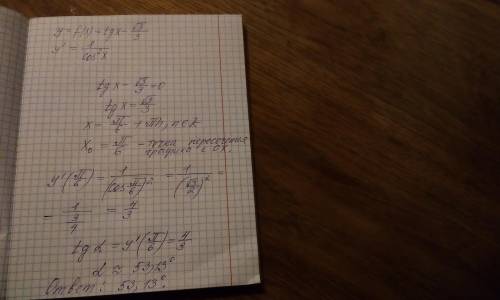 y = f(x) = tgx - √3/3
y' = 1/cos²x
tgx - √3/3 = 0
tgx = √3/3
x = π/6 + πn, n∈Z
x₀ = π/6 - точка пересечения
графика с OX.
y'(π/6) = 1/(cos π/6)² = 1/(√3/2)² =
= 1/(3/4) = 4/3
tg α = y'(π/6) = 4/3
α ≈ 53,13°
Ответ: 53,13°.